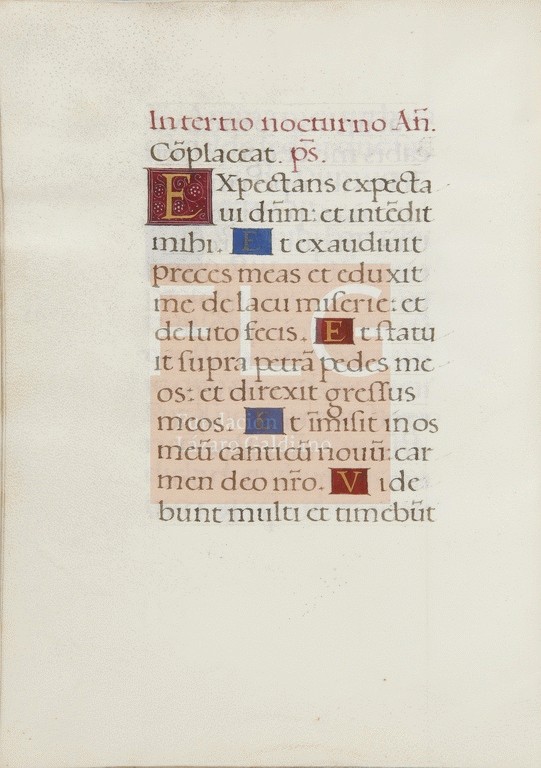 In tertio nocturno Añ.
Cōplaceat. p̄s.
EXpectans expecta
ui dn̄m: et intēdit
mihi. Et exaudiuit
preces meas et eduxit
me de lacu miserie: et
de luto fecis. Et statu
it supra petrā pedes me
os: et direxit gressus
meos. Et īmisit in os
meū canticū nouū: car
men deo nr̄o. Vide
bunt multi et timebūt
FLG
Fundación
Lázaro Galdiano